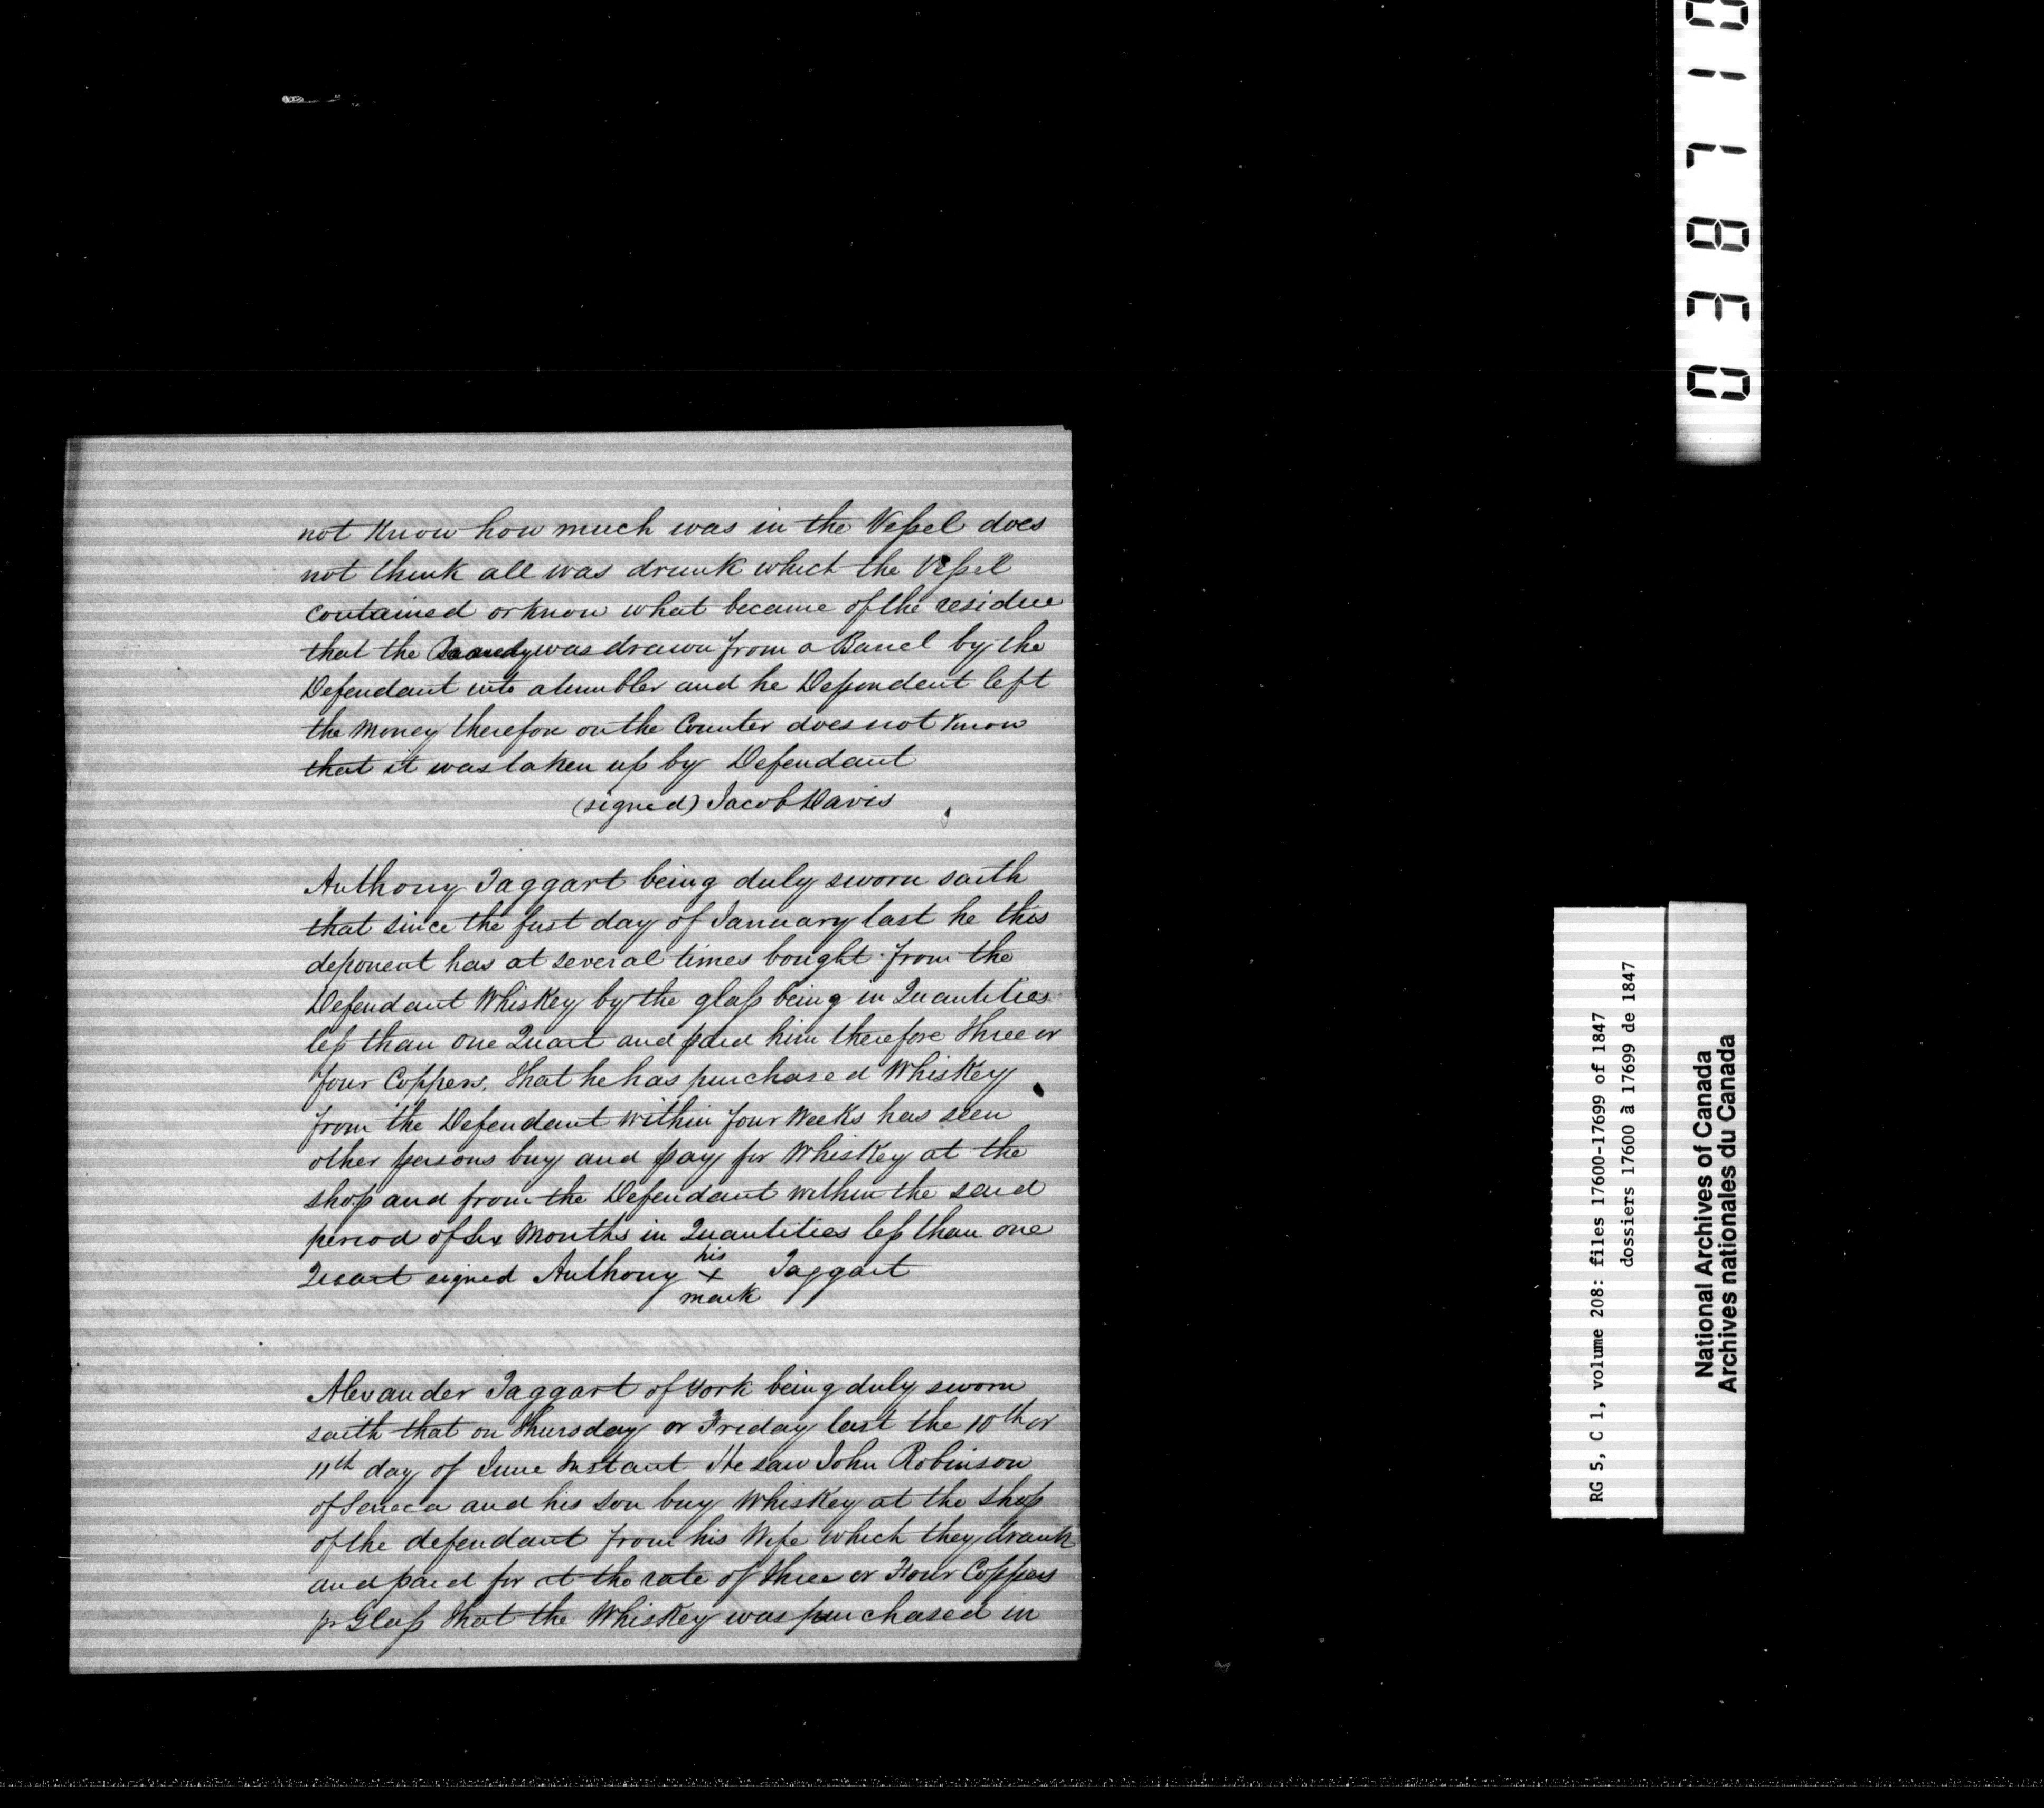 not Know how much was in the Vessel does
not think all was drunk which the Vessel
contained or know what became of the residue
that the Brandy was drawn from a Barrel by the
Defendant into a tumbler and he Deponent left
the money therefore on the Counter does not Know
that it was taken up by Defendant
(signed) Jacob Davis
Anthony Taggart being duly sworn saith
that since the first day of January last he this
deponent has at several times bought from the
Defendant Whiskey by the glass being in Quantities
less than one Quart and paid him therefore three or
four Coppers. that he has purchased Whiskey
from the Defendant within four Weeks has seen
other persons buy and pay for Whiskey at the
shop and from the Defendant within the said
period of Six Months in Quantities less than one
Quart signed Anthony his x mark Taggart
Alexander Taggart of York being duly sworn
saith that on thursday or Friday last the 10th or
11th day of June Instant He saw John Robinson
of Seneca and his son buy Whiskey at the shop
of the defendant from his Wife which they drank
and paid for at the rate of three or Four Coppers
pr Glass that the Whiskey was purchased in
038710
RG 5, C 1, volume 208: files 17600-17699 of 1847
dossiers 17600 à 17699 de 1847
National Archives of Canada
Archives nationales du Canada